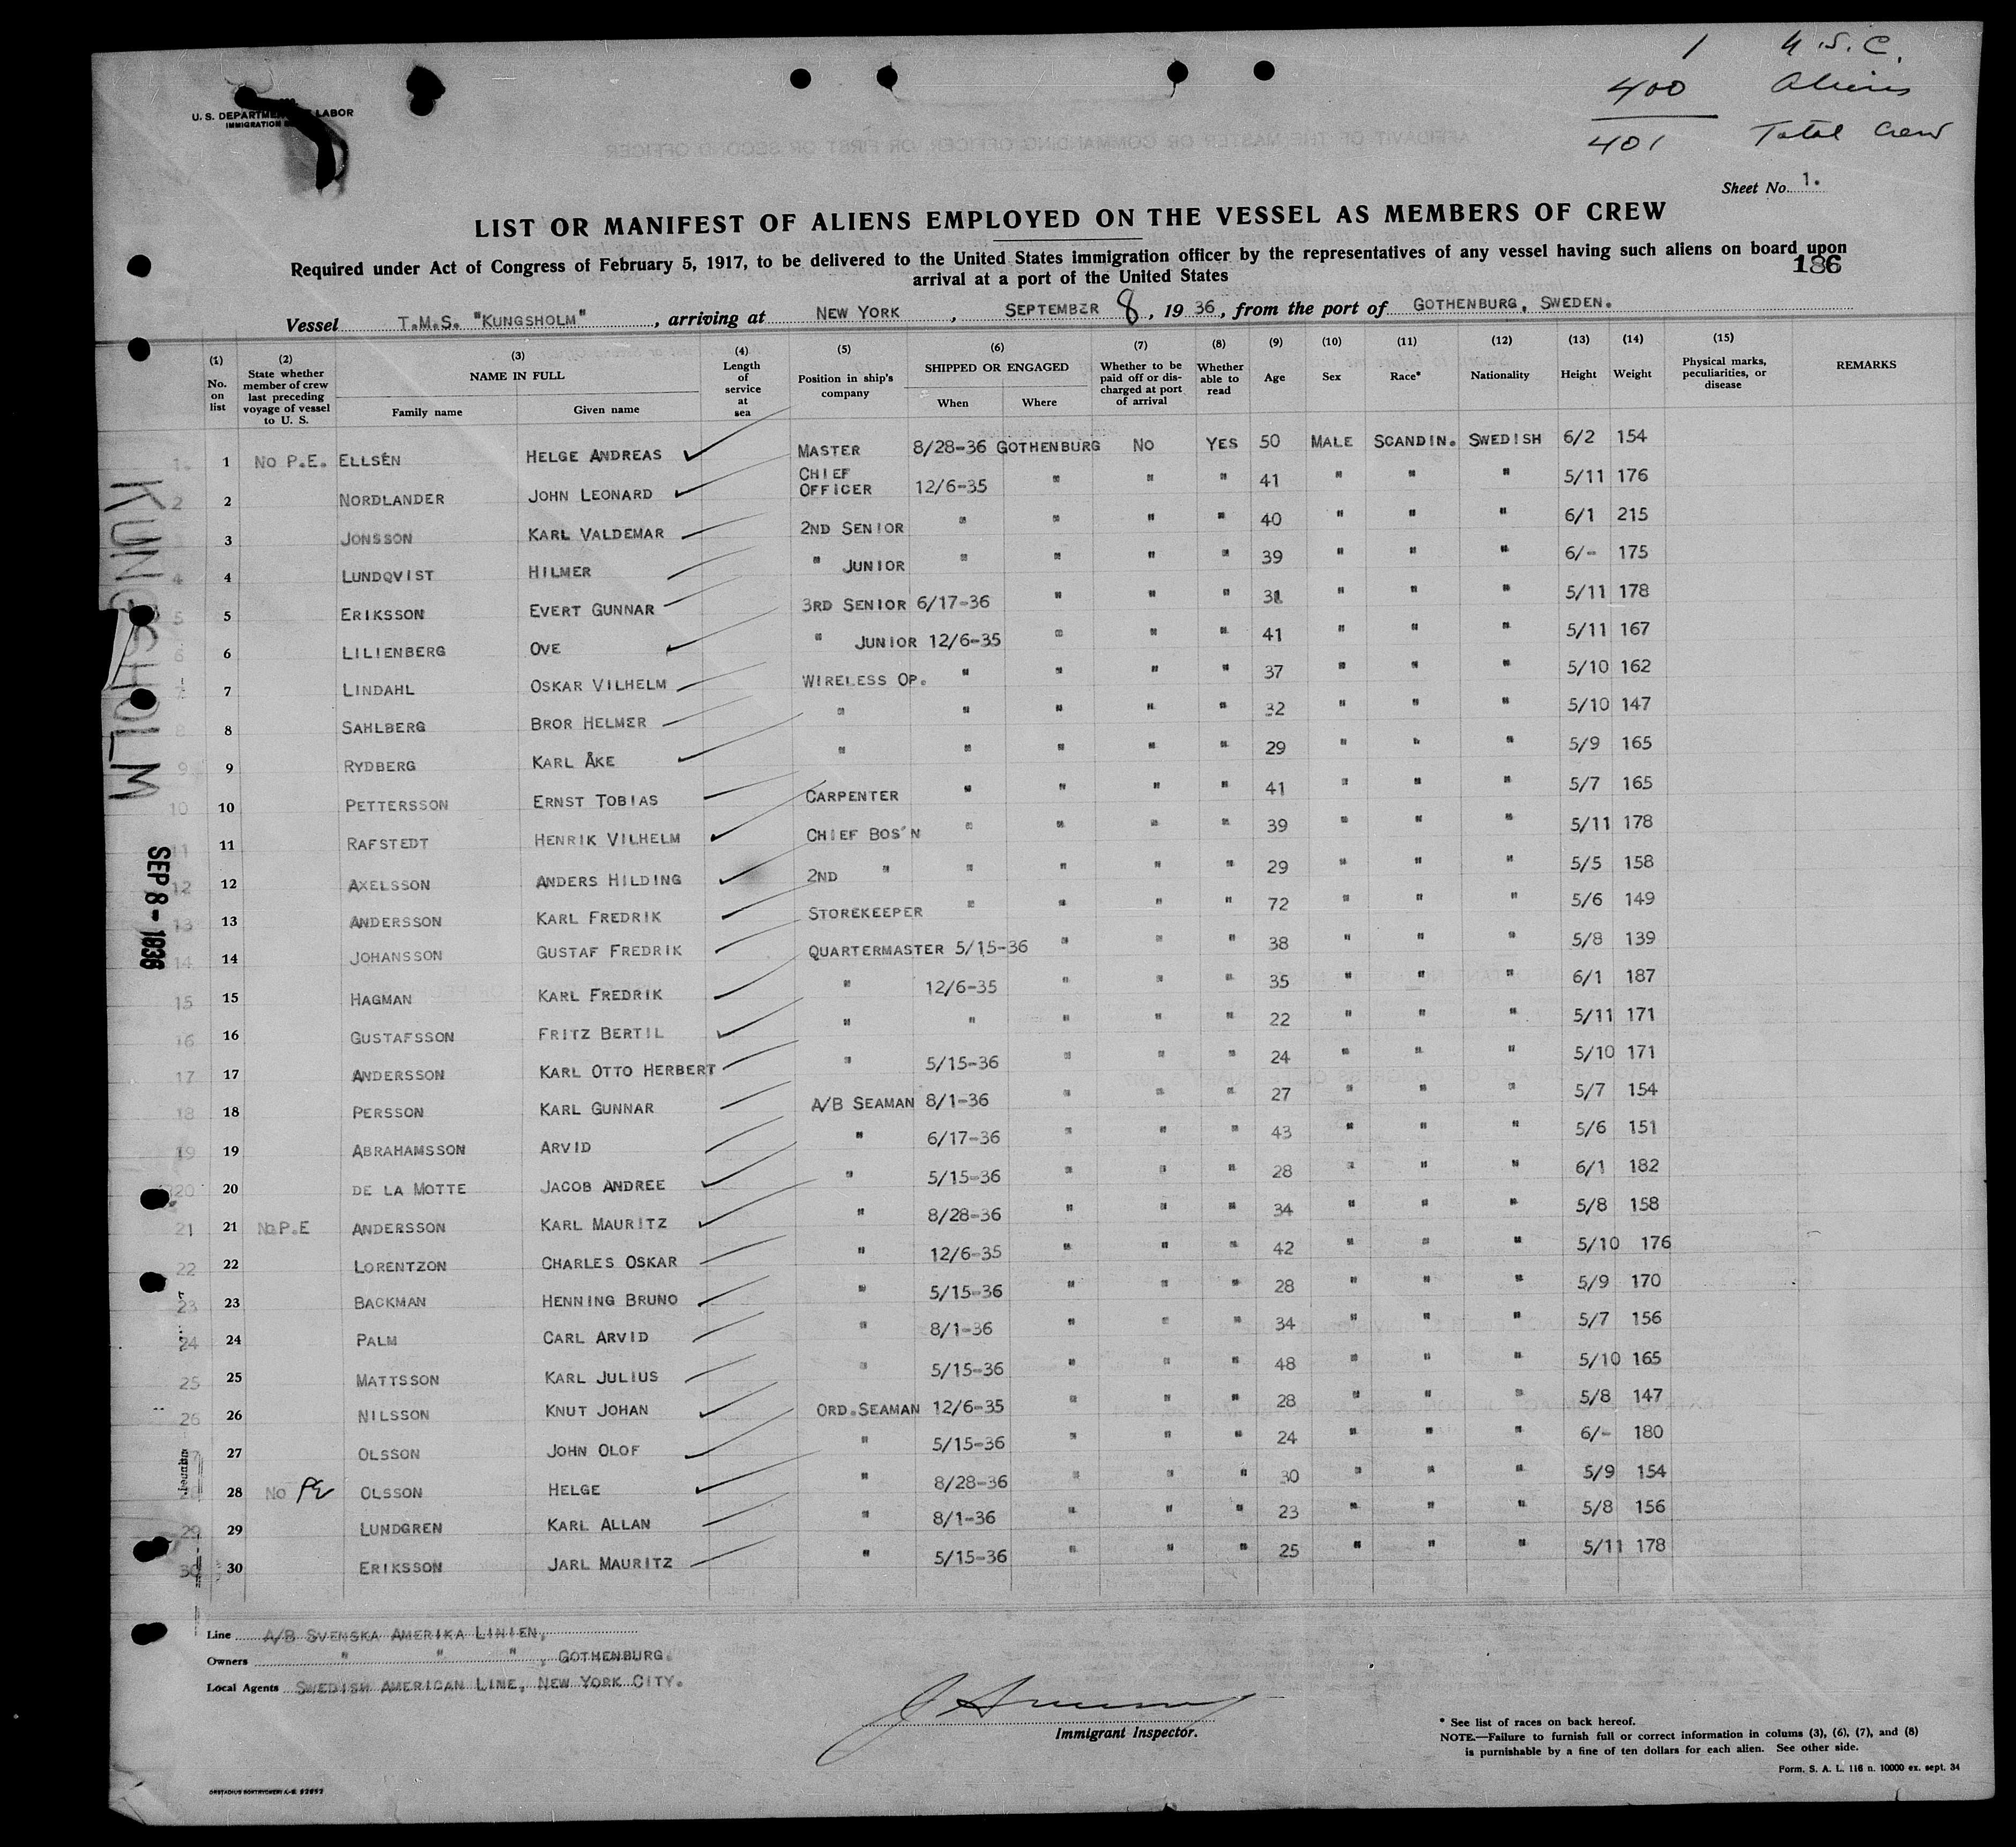 1 U.S.C.
400 Aliens
401 Total Crew
U. S. DEPARTMENT OF LABOR
IMMIGRATION
Sheet No. 1.
LIST OR MANIFEST OF ALIENS EMPLOYED ON THE VESSEL AS MEMBERS OF CREW
Required under Act of Congress of February 5, 1917, to be delivered to the United States immigration officer by the representatives of any vessel having such aliens on board upon
arrival at a port of the United States
186
Vessel T.M.S. "KUNGSHOLM", arriving at NEW YORK, SEPTEMBER 8, 1936, from the port of GOTHENBURG, SWEDEN.
(1) No. on list (2) State whether member of crew last preceding voyage of vessel to U. S. (3) NAME IN FULL Family name Given name (4) Length of service at sea (5) Position in ship's company (6) SHIPPED OR ENGAGED When Where (7) Whether to be paid off or discharged at port of arrival (8) Whether able to read (9) Age (10) Sex (11) Race* (12) Nationality (13) Height (14) Weight (15) Physical marks, peculiarities, or disease REMARKS
1 NO P.E. ELLSÉN HELGE ANDREAS MASTER 8/28-36 GOTHENBURG NO YES 50 MALE SCANDIN. SWEDISH 6/2 154
2 NORDLANDER JOHN LEONARD CHIEF OFFICER 12/6-35 " " " 41 " " " 5/11 176
3 JONSSON KARL VALDEMAR 2ND SENIOR " " " " 40 " " " 6/1 215
4 LUNDQVIST HILMER " JUNIOR " " " " 39 " " " 6/- 175
5 ERIKSSON EVERT GUNNAR 3RD SENIOR 6/17-36 " " " 31 " " " 5/11 178
6 LILIENBERG OVE " JUNIOR 12/6-35 " " " 41 " " " 5/11 167
7 LINDAHL OSKAR VILHELM WIRELESS OP. " " " " 37 " " " 5/10 162
8 SAHLBERG BROR HELMER " " " " " 32 " " " 5/10 147
9 RYDBERG KARL ÅKE " " " " " 29 " " " 5/9 165
10 PETTERSSON ERNST TOBIAS CARPENTER " " " " 41 " " " 5/7 165
11 RAFSTEDT HENRIK VILHELM CHIEF BOS'N " " " " 39 " " " 5/11 178
12 AXELSSON ANDERS HILDING 2ND " " " " " 29 " " " 5/5 158
13 ANDERSSON KARL FREDRIK STOREKEEPER " " " " 72 " " " 5/6 149
14 JOHANSSON GUSTAF FREDRIK QUARTERMASTER 5/15-36 " " " 38 " " " 5/8 139
15 HAGMAN KARL FREDRIK " 12/6-35 " " " 35 " " " 6/1 187
16 GUSTAFSSON FRITZ BERTIL " " " " " 22 " " " 5/11 171
17 ANDERSSON KARL OTTO HERBERT " 5/15-36 " " " 24 " " " 5/10 171
18 PERSSON KARL GUNNAR A/B SEAMAN 8/1-36 " " " 27 " " " 5/7 154
19 ABRAHAMSSON ARVID " 6/17-36 " " " 43 " " " 5/6 151
20 DE LA MOTTE JACOB ANDREE " 5/15-36 " " " 28 " " " 6/1 182
21 NO P.E ANDERSSON KARL MAURITZ " 8/28-36 " " " 34 " " " 5/8 158
22 LORENTZON CHARLES OSKAR " 12/6-35 " " " 42 " " " 5/10 176
23 BACKMAN HENNING BRUNO " 5/15-36 " " " 28 " " " 5/9 170
24 PALM CARL ARVID " 8/1-36 " " " 34 " " " 5/7 156
25 MATTSSON KARL JULIUS " 5/15-36 " " " 48 " " " 5/10 165
26 NILSSON KNUT JOHAN ORD.SEAMAN 12/6-35 " " " 28 " " " 5/8 147
27 OLSSON JOHN OLOF " 5/15-36 " " " 24 " " " 6/- 180
28 NO PE OLSSON HELGE " 8/28-36 " " " 30 " " " 5/9 154
29 LUNDGREN KARL ALLAN " 8/1-36 " " " 23 " " " 5/8 156
30 ERIKSSON JARL MAURITZ " 5/15-36 " " " 25 " " " 5/11 178
KUNGSHOLM
SEP 8 - 1936
Line A/B SVENSKA AMERIKA LINIEN,
Owners " " ", GOTHENBURG.
Local Agents SWEDISH AMERICAN LINE, NEW YORK CITY.
Immigrant Inspector.
* See list of races on back hereof.
NOTE.—Failure to furnish full or correct information in colums (3), (6), (7), and (8)
is punishable by a fine of ten dollars for each alien. See other side.
Form. S. A. L. 116 n. 10000 ex. sept. 34